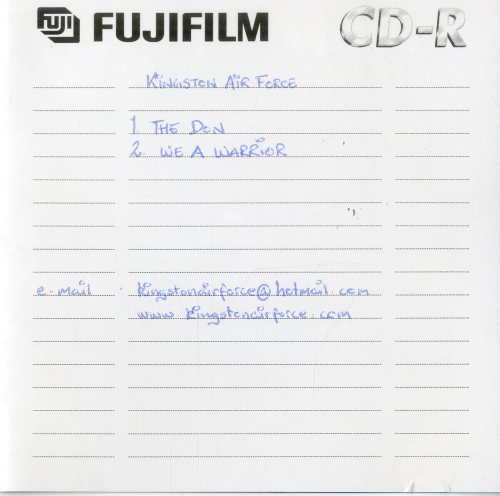 FUJI FUJIFILM CD-R
KINGSTON AIR FORCE
1. THE DON
2. WE A WARRIOR
e-mail kingstonairforce@hotmail.com
www.kingstonairforce.com